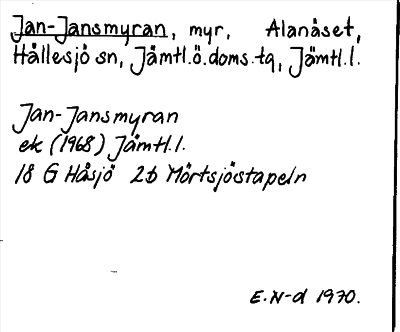 Jan-Jansmyran, myr, Alanäset,
Hällesjö sn, Jämtl.ö.doms.tg, Jämtl.l.
Jan-Jansmyran
ek (1968) Jämtl.l.
18 G Håsjö 2b Mörtsjöstapeln
E.N-d 1970.